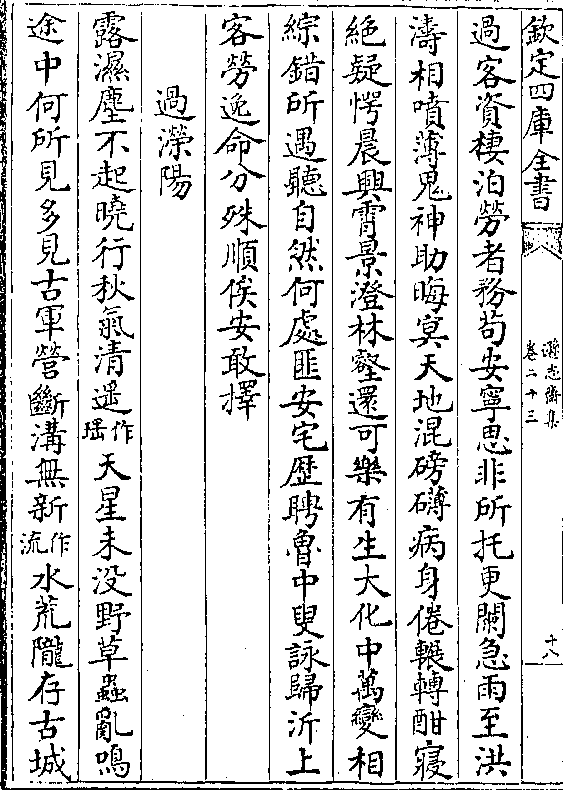 欽定四庫全書
遜志齋集
卷二十三
十八
過客資棲泊勞者務苟安寧思非所托更闌急雨至洪
濤相噴薄鬼神助晦冥天地混磅礴病身倦輾轉酣寢
絶疑愕晨興霄景澄林壑還可樂有生大化中萬變相
綜錯所遇聽自然何處匪安宅歴聘魯中叟詠歸沂上
客勞逸命分殊順俟安敢擇
過滎陽
露濕塵不起曉行秋氣清遥作瑶天星未没野草蟲亂鳴
途中何所見多見古軍營斷溝無新作流水荒隴存古城